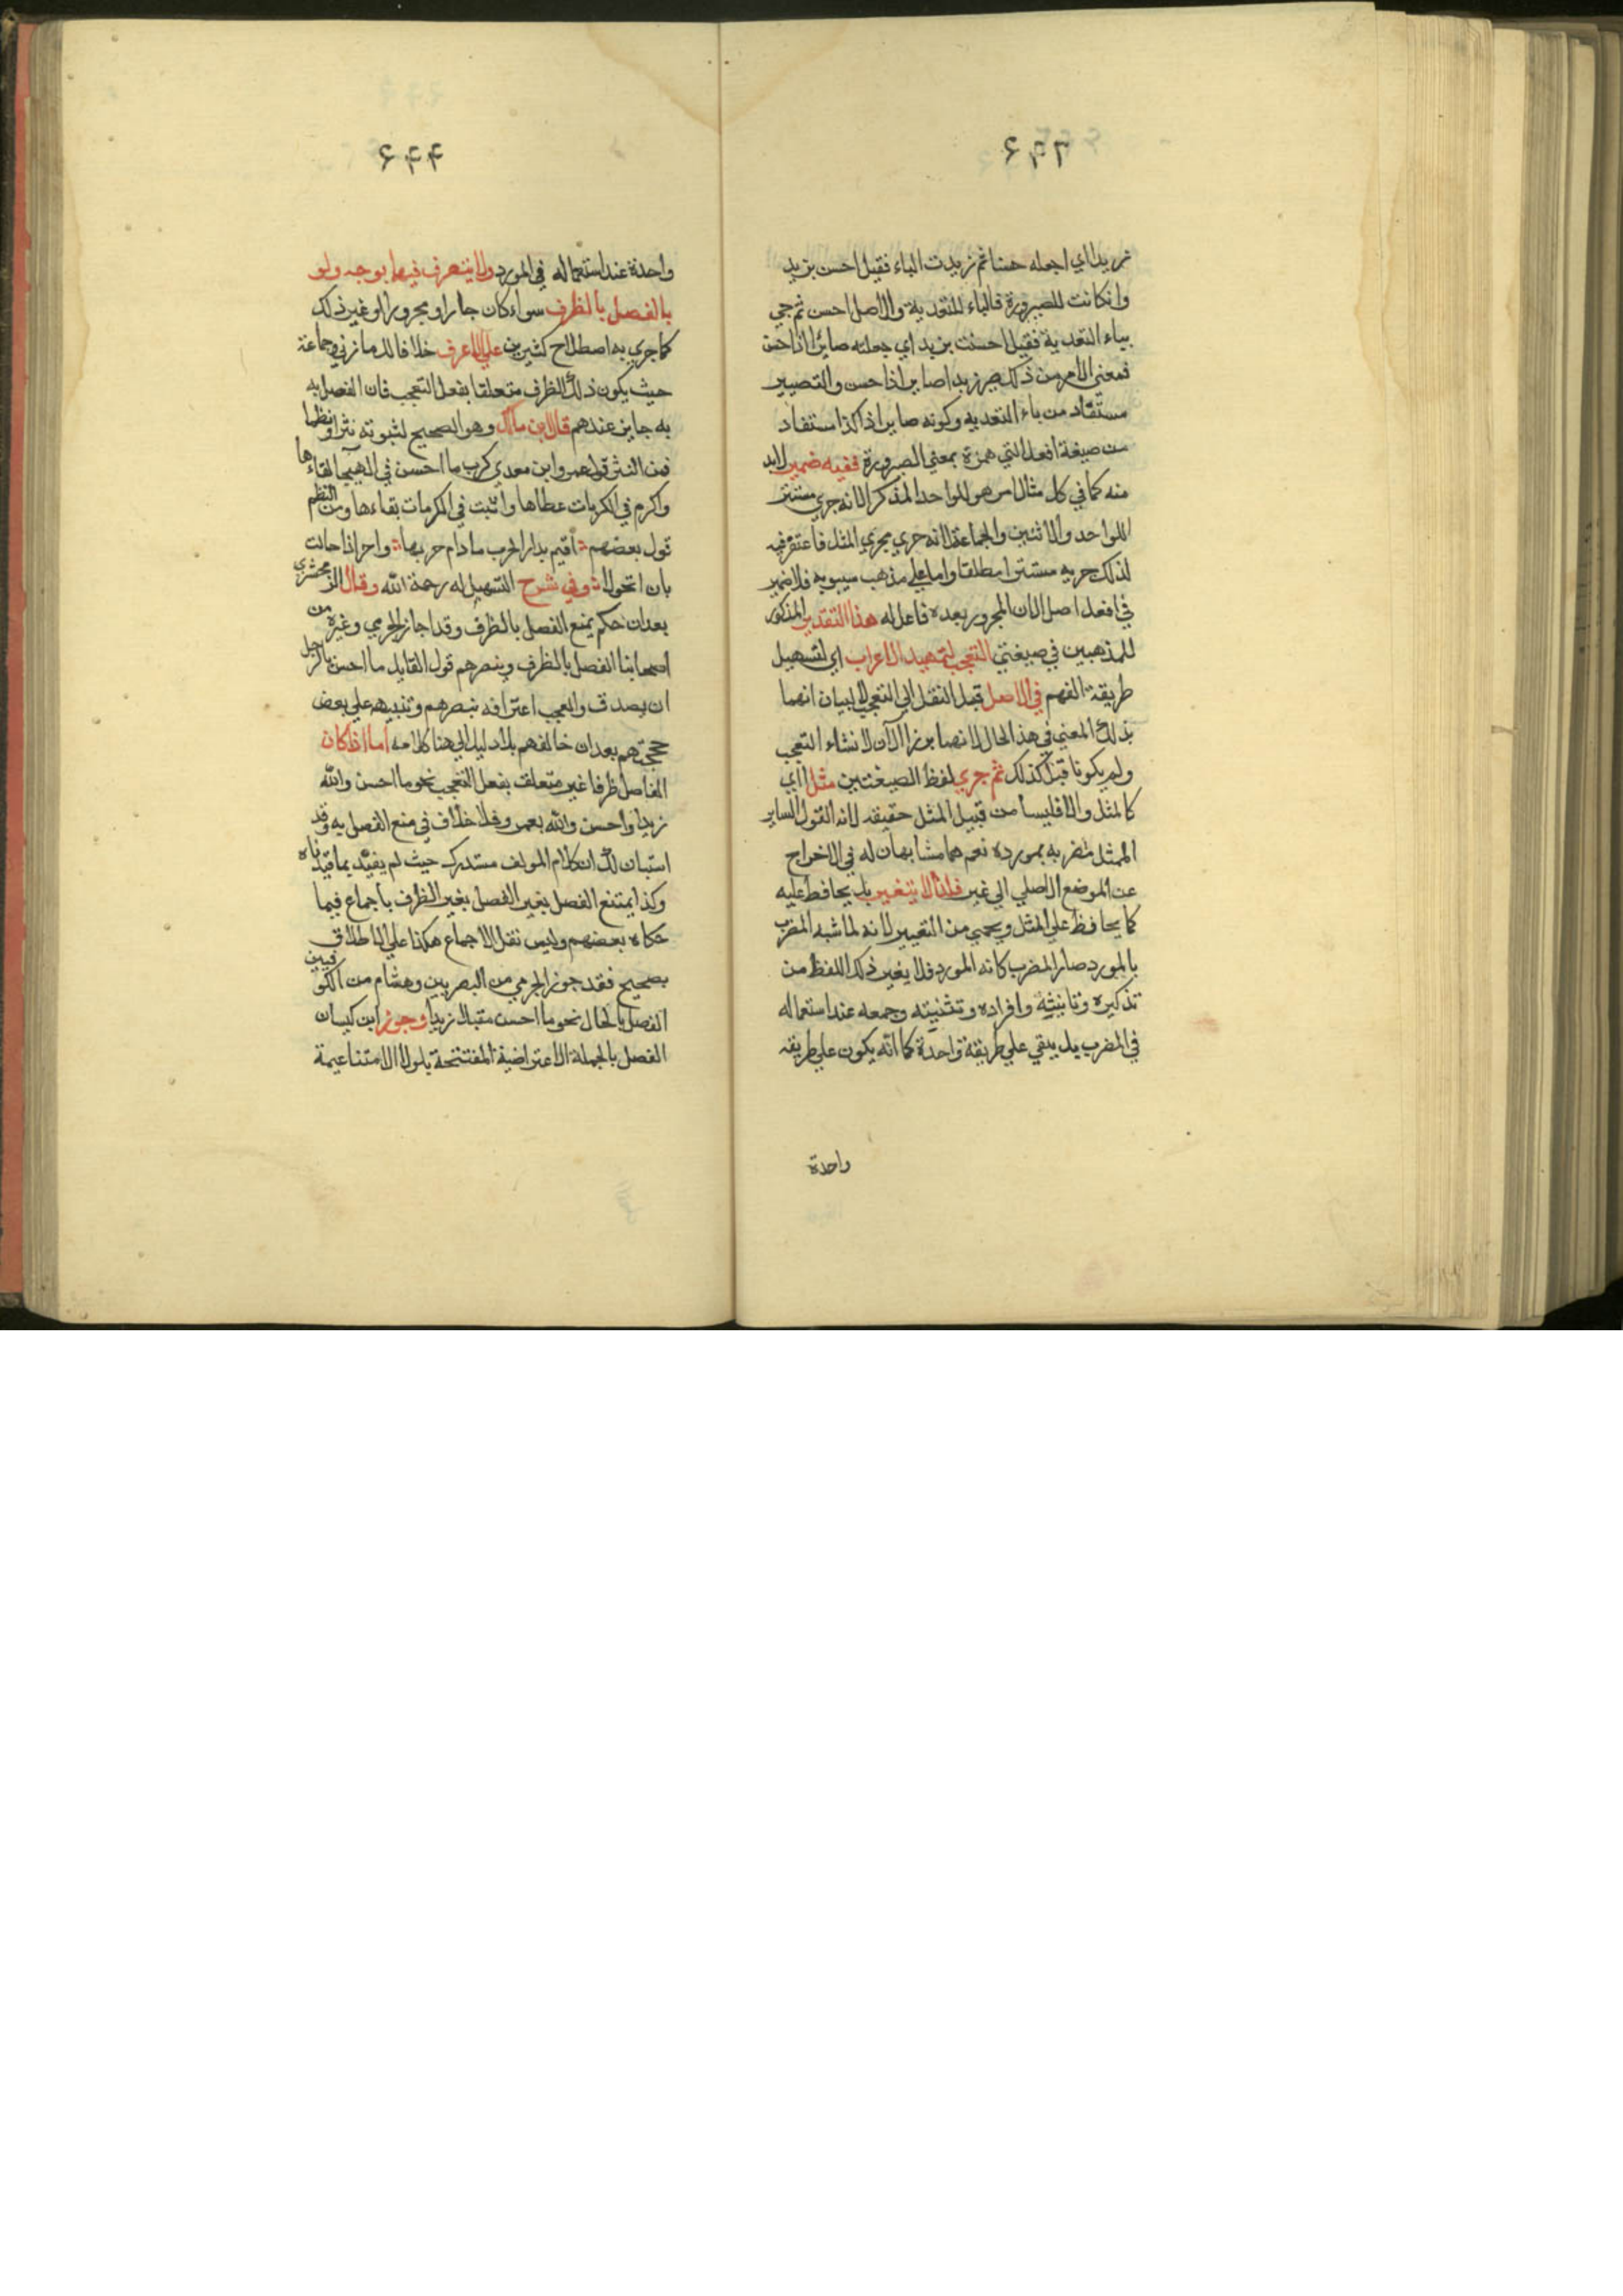 ٤٢٦
زيدا اي اجعله حسنا ثم زيدت الباء فقيل احسن بزيد
وان كانت للصيرورة فالباء للتعدية والاصل احسن ثم جي
بباء التعدية فقيل احسنت بزيد اي جعلته صائرا ذا حسن
فمعنى الامر من ذلك صير زيدا صايرا ذا حسن والتصيير
مستفاد من باء التعديه وكونه صايرا ذا كذا استفاد
من صيغة افعل التي همزة بمعني الصيرورة ففيه ضمير لابد
منه كما في كل مثال امر هو للواحد المذكر الا انه جري مستتر
للواحد والاثنين والجماعة لانه جري مجري المثل فاغتفر فيه
لذلك جريه مستترا مطلقا واما علي مذهب سيبويه فلا ضمير
في افعل اصلا لان المجرور بعده فاعل له هذا التقدير المذكور
للمذهبين في صيغتي التعجب لتمهيد الاعراب اي لتسهيل
طريقة الفهم في الاصل قبل النقل الي التعجب لا لبيان انهما
بذلك المعني في هذ الحال لانصا برزا الآن لانشاء التعجب
ولم يكونا قبل كذلك ثم جري لفظ الصيغتين مثلا اي
كالمثل والا فليسا من قبيل المثل حقيقه لانه القول الساير
الممثل مضربه بمورده نعم هما مشابهان له في الاخراج
عن الموضع الاصلي الي غير فلذا لا يتغير بل يحافظ عليه
كما يحافظ علي المثل ويحمي من التغيير لانه لما شبه المضرب
بالمورد صار المضرب كانه المورد فلا يغير ذلك اللفظ من
تذكيره وتانيثه وافراده وتثنيته وجمعه عند استعماله
في المضرب بل يبقي علي طريقة واحدة كما انه يكون علي طريقه
واحدة
٤٤٦
واحدة عند استعماله في المورد ولا يتصرف فيها بوجه ولو
بالفصل بالظرف سواء كان جارا ومجرورا او غير ذلك
كما جري به اصطلاح كثيرين علي الاعرف خلافا للمازني وجماعة
حيث يكون ذلك الظرف متعلقا بفعل التعجب فان الفصل به
به جايز عندهم قال ابن مالك وهو الصحيح لثبوته نثرا ونظما
فمن النثر قول عمرو ابن معدي كرب ما احسن في الهيجا لقاءها
واكرم في الكربات عطاها واثبت في المكرمات بقاءها ومن النظم
قول بعضهم اقيم بدار الحرب مادام حربها واحر اذا حالت
بان اتحولا وفي شرح التسهيل له رحمة الله وقال الزمخشري
بعد ان حكم بمنع الفصل بالظرف وقد اجاز الجرمي وغيره من
اصحابنا الفصل بالظرف وينصرهم قول القايل ما احسن بالرجل
ان يصدق والعجب اعترافه بنصرهم وتنبيهه علي بعض
حججهم بعد ان خالفهم بلا دليل الي هنا كلامه اما اذا كان
الفاصل ظرفا غير متعلق بفعل التعجب نحو ما احسن والله
زيدا واحسن والله بعمرو فلا خلاف في منع الفصل به وقد
استبان لك ان كلام المولف مستدرك حيث لم يقيد بما قيدناه
وكذا يمتنع الفصل بغير الفصل بغير الظرف باجماع فيما
حكاه بعضهم وليس نقل الاجماع هكذا علي الاطلاق
بصحيح فقد جوز الجرمي من البصريين وهشام من الكوفيين
الفصل بالحال نحو ما احسن مقبلا زيدا وجوز ابن كيسان
الفصل بالجملة الاعتراضية المفتتحة بلولا الامتناعيمة